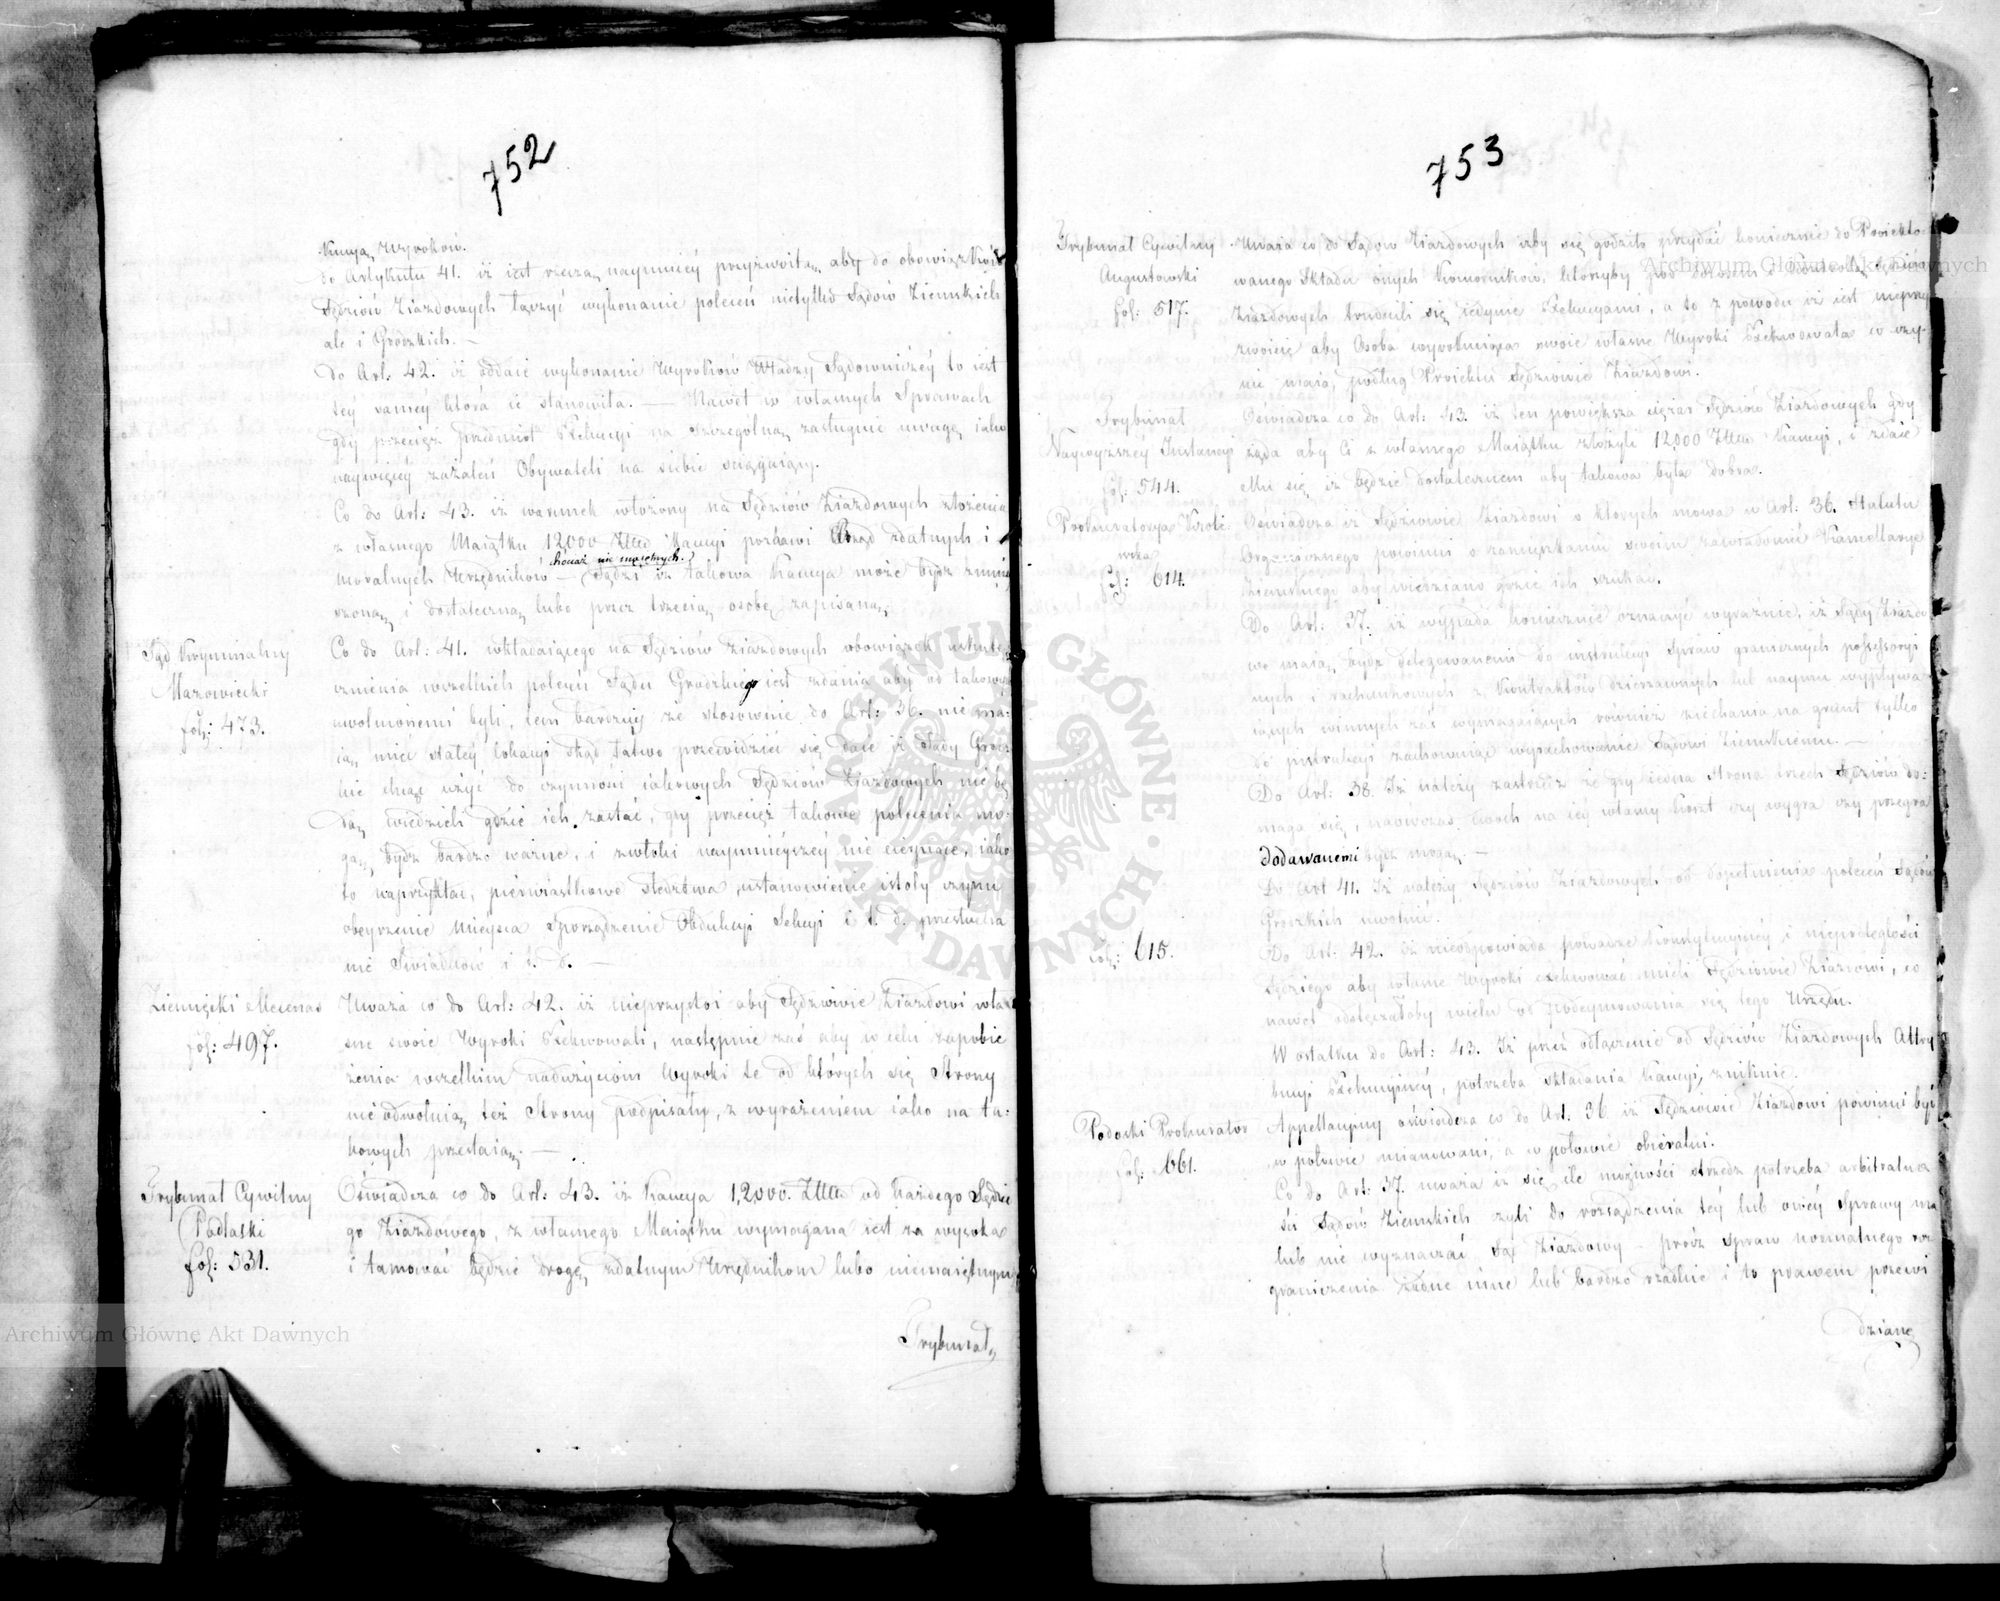 752
kucyą Wyroków.
do Artykułu 41. iż iest rzeczą naymniéy przyzwoitą aby do obowiązków
Sędziów Ziazdowych łączyć wykonanie poleceń nietylko Sądów Ziemskich
ale i Grodzkich. —
Do Art: 42. iż oddaie wykonanie Wyroków Władzy Sądowniczéy to iest
téy saméy która ie stanowiła. — Nawet w własnych Sprawach
gdy przecięż przedmiot Exekucyi na szczególną zasługuie uwagę iako
naywięcéy zażaleń Obywateli na siebie ściągaiący.
Co do Art: 43. iż warunek włożony na Sędziów Ziazdowych złożenia
z własnego Maiątku 12000 Złłł Kaucyi pozbawi Urząd zdatnych i
chociaż nie maiętnych
moralnych Urzędników — Sądzi iż takowa Kaucya może bydź zmniey
szoną i dostateczną lubo przez trzecią osobę zapisaną
Sąd Kryminalny
Mazowiecki
fol: 473.
Co do Art: 41. wkładaiącego na Sędziów Ziazdowych obowiązek uskute
cznienia wszelkich poleceń Sądu Grodzkiego iest zdania aby od takowych
uwolnionemi byli, tém bardziéy że stosownie do Art: 36. nie ma:
ią mieć stałéy lokacyi skąd łatwo przewidzieć się daie iż Sądy Grodz:
kie chcąc użyć do czynności iakowych Sędziów Ziazdowych nie bę
dą wiedzieli gdzie ich zastać, gdy przecięż takowe polecenia mo:
gą bydź bardzo ważne, i zwłoki naymnieyszéy nie cierpiące, iako
to naprzykład, pierwiastkowe śledztwa, ustanowienie istoty czynu
obeyrzenie mieysca Sporządzenie Obdukcyi Sekcyi i t. d. przesłucha
nie Świadków i t. d. —
Ziemięcki Mecenas
fol: 497.
Uważa co do Art: 42. iż nieprzystoi aby Sędziowie Ziazdowi włas
sne swoie Wyroki Exekwowali, następnie zaś aby w celu zapobie
żenia wszelkim nadużyciom Wyroki te od których się Strony
nie odwołuią też Strony podpisały, z wyrażeniem iako na ta:
kowych przestaią. —
Trybunał Cywilny
Podlaski
fol: 531.
Oświadcza co do Art: 43. iż Kaucya 12,000. Złłł od każdego Sędzie
go Ziazdowego, z własnego Maiątku wymagana iest za wysoka
i tamować będzie drogę zdatnym Urzędnikom lubo niemaiętnym
Trybunał
753
Trybunał Cywilny
Augustowski
fol: 517.
Uważa co do Sądów Ziazdowych iżby się godziło przydać koniecznie do Proiekto:
wanego Składu onych Komorników, którzyby pod
Ziazdowych trudnili się iedynie Exekucyami, a to z powodu iż iest nieprzy
zwoicie aby Osoba wyrokuiąca swoie własne Wyroki Exekwowała co czy:
nić maią podług Proiektu Sędziowie Ziazdowi.
Trybunał
Naywyższéy Instancyi
fol: 544.
Oświadcza co do Art: 43. iż ten powiększa ciężar Sędziów Ziazdowych gdy
żąda aby Ci z własnego Maiątku złożyli 12,000 Złłł Kaucyi, i zdaie
Mu się iż będzie dostatecznem aby takowa była dobra.
Prokuratorya Króle:
wska
fol: 614.
Oświadcza iż Sędziowie Ziazdowi o których mowa w Art: 36. Statutu
Organicznego powinni o zamieszkaniu swoim zawiadomić Kancellaryę
Ziemskiego aby wiedziano gdzie ich szukać.
Do Art: 37. iż wypada koniecznie oznaczyć wyraźnie, iż Sądy Ziazdo
we maią bydź delegowanemi do instrukcyi Spraw granicznych possessoryi
nych i rachunkowych z Kontraktów dzierżawnych lub naymu wypływa
iących winnych zaś wymagaiących również ziechania na grunt tylko
do instrukcyi zachowuiąc wyrachowanie Sądowi Ziemskiemu. —
Do Art: 38. Iż należy zastrzedz że gdy iedna Strona trzech Sędziów do:
maga się, naówczas trzech na iéy własny koszt czy wygra czy przegra
dodawanemi bydź mogą. —
Do Art 41. Iż należy Sędziów Ziazdowych od dopełnienia poleceń Sądów
Grodzkich uwolnić.
fol: 615.
Do Art: 42. Iż nieodpowiada powadze Konstytucyinéy i niepodległości
Sędziego aby własne Wyroki exekwować mieli Sędziowie Ziazdowi, co
nawet odstręczałoby wielu od podeymowania się tego Urzędu.
W ostatku do Art: 43. Iż przez odłączenie od Sędziów Ziazdowych Attry
bucyi Exekucyinéy, potrzeba składania Kaucyi zniknie.
Podoski Prokurator
fol: 661.
Appellacyiny oświadcza co do Art. 36 iż Sędziowie Ziazdowi powinni być
w połowie mianowani, a w połowie obieralni.
Co do Art: 37. uważa iż się ile możności strzedz potrzeba arbitralno
ści Sądów Ziemskich czyli do rozsądzenia téy lub owéy Sprawy ma
lub nie wyznaczać Sąd Ziazdowy — prócz Spraw normalnego roz
graniczenia żadne inne lub bardzo rzadkie i to prawem przewi
dziane
ARCHIWUM GŁÓWNE AKT DAWNYCH
Archiwum Główne Akt Dawnych
Archiwum Główne Akt Dawnych